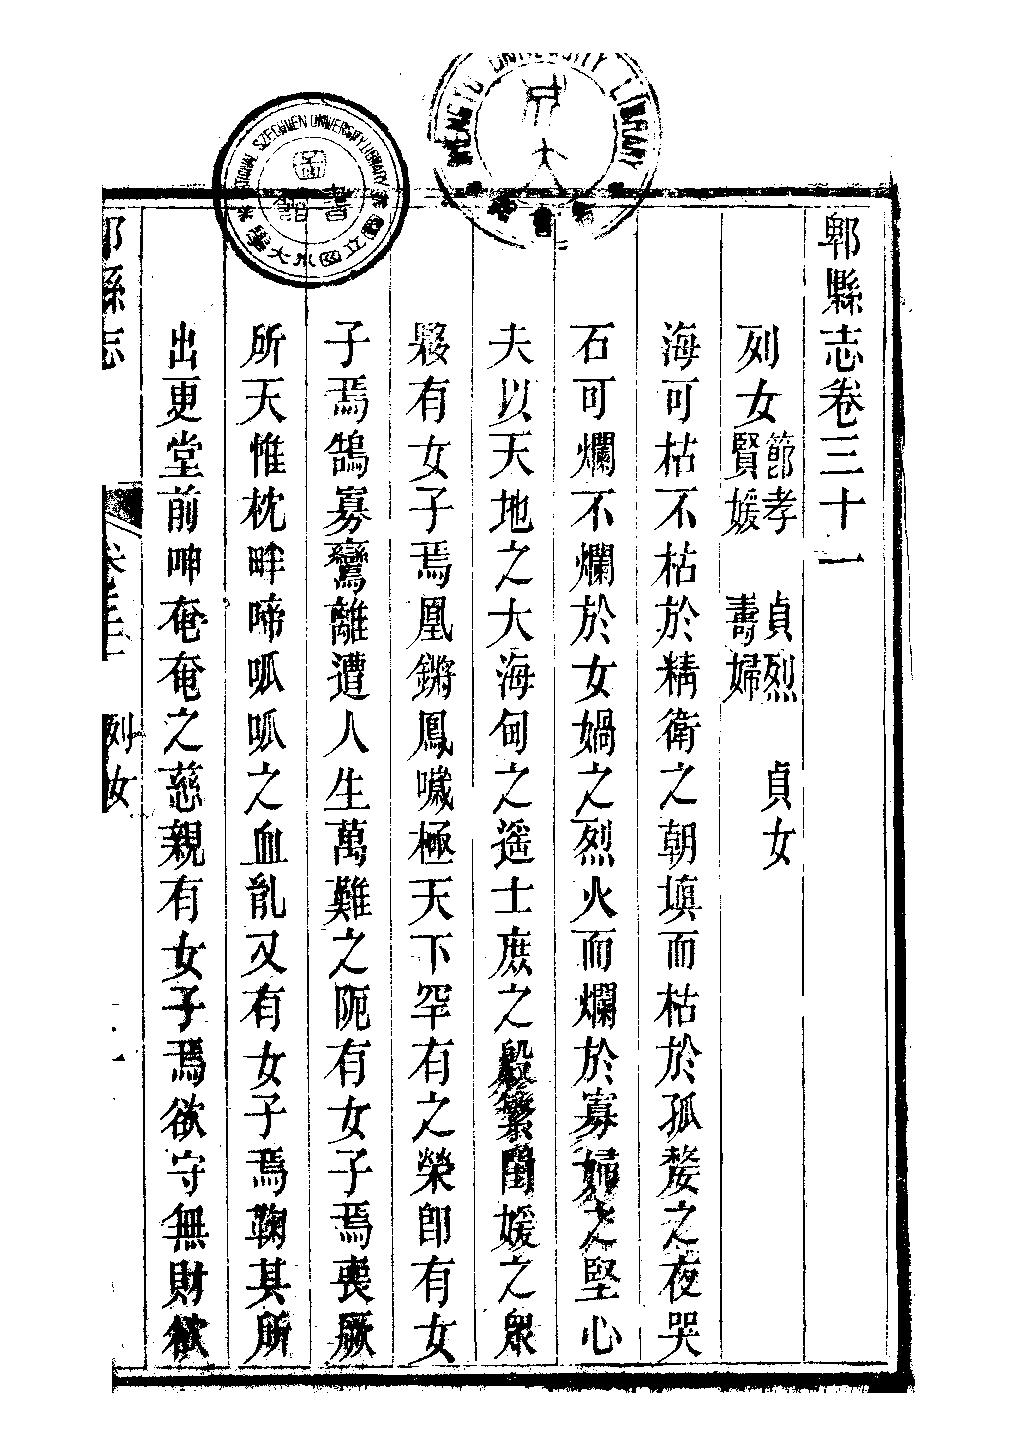 郫縣志卷三十一
列女 節孝 貞烈 貞女 賢媛 壽婦
海可枯不枯於精衛之朝塡而枯於孤嫠之夜哭
石可爛不爛於女媧之烈火而爛於寡婦之堅心
夫以天地之大海甸之遥士庶之殷繁閨媛之衆
夥有女子焉凰鏘鳳噦極天下罕有之榮卽有女
子焉鵠寡鸞離遭人生萬難之阨有女子焉喪厥
所天惟枕畔啼呱呱之血亂又有女子焉鞠其所
出更堂前呻奄奄之慈親有女子焉欲守無財欲
郫縣志 列女
NATIONAL SZECHUEN UNIVERSITY LIBRARY
國立四川大學
圖書館
UNIVERSITY LIBRARY